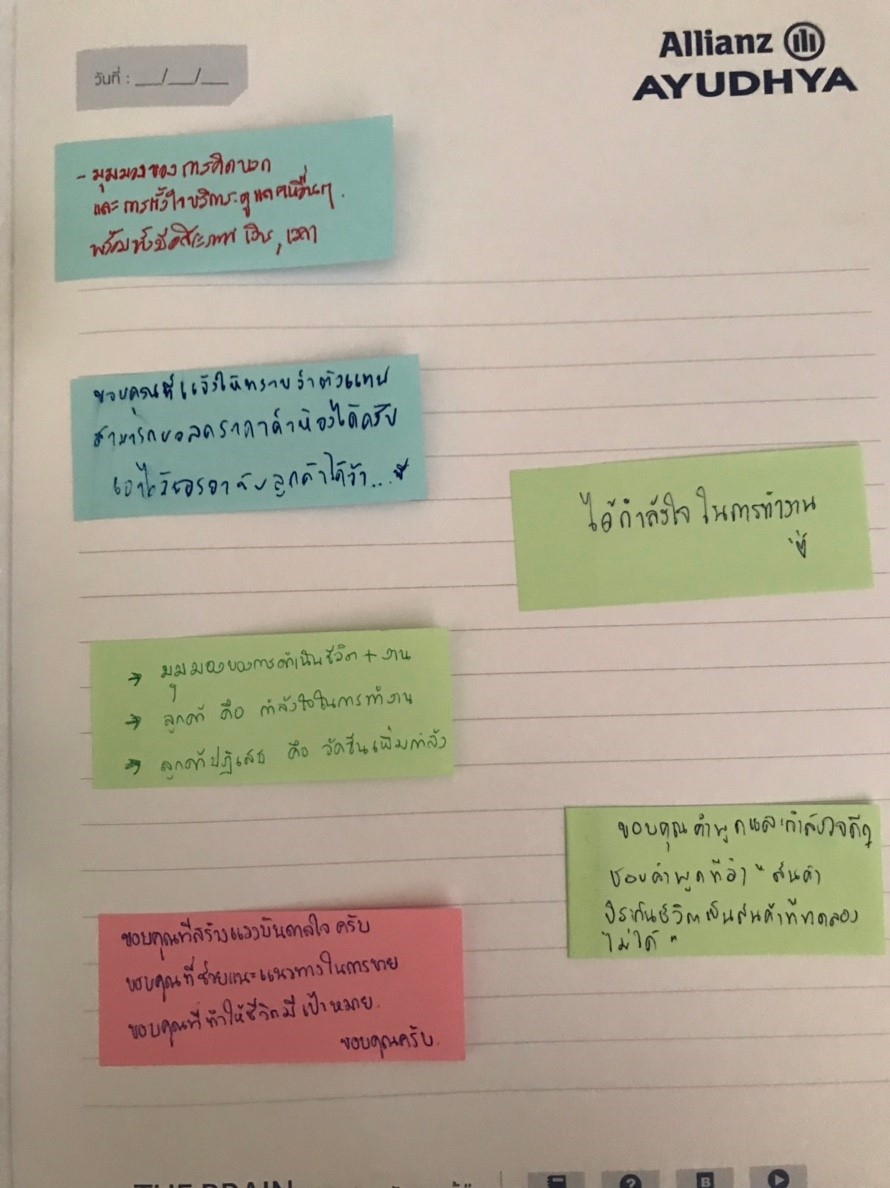 วันที่ : __/__/__
Allianz
AYUDHYA
- มุมมองของการคิดบวก
และการตั้งใจบริการดูแลคนอื่นๆ.
พร้อมทั้งมีอิสระภาพ เงิน, เวลา
ขอบคุณที่แจ้งให้ทราบว่าตัวแทน
สามารถขอลดราคาค่าห้องได้ครับ
เอาไว้ลูกค้าได้ว้า...
ได้กำลังใจ ในการทำงาน
→ มุมมองของการดำเนินชีวิต + งาน
→ ลูกค้า คือ กำลังใจในการทำงาน
→ ลูกค้าปฏิเสธ คือ วัคซีนเพิ่มกำลัง
ขอบคุณคำพูดและกำลังใจดีๆ
ชอบคำพูดที่ว่า "สินค้า
ประกันชีวิตเป็นสินค้าที่ทดลอง
ไม่ได้"
ขอบคุณที่สร้างแรงบันดาลใจ ครับ
ขอบคุณที่ช่วยแนะแนวทางในการขาย
ขอบคุณที่ทำให้ชีวิตมีเป้าหมาย.
ขอบคุณครับ.
THE BRAIN